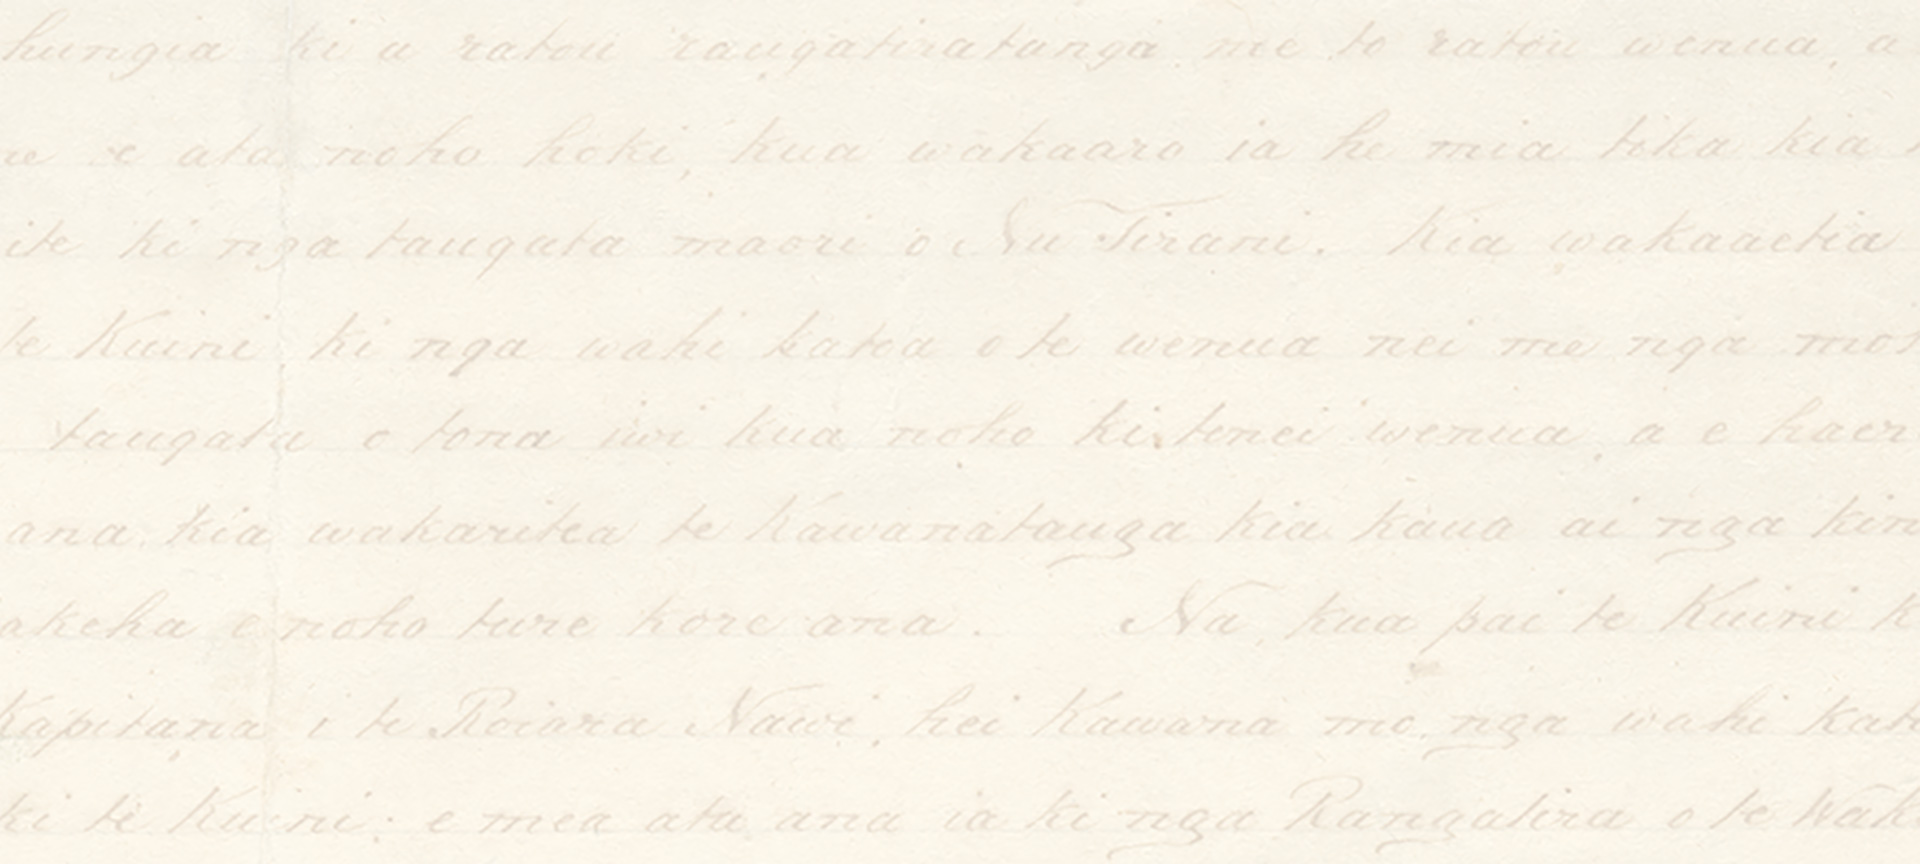 hungia ki a ratou rangatiratanga me to ratou wenua, a
e ata noho hoki, kua wakaaro ia he mia tika kia
ite ki nga tangata maori o Nu Tirani. Kia wakaaetia
te Kuini ki nga wahi katoa o te wenua nei me nga mot
tangata o tona iwi kua noho ki tenei wenua, a e haer
ana. kia wakaritea te Kawanatanga kia kaua ai nga kin
akeha e noho ture kore ana. Na, kua pai te Kuini k
Kapitana i te Roiara Nawi, hei Kawana mo nga wahi kato
ki te Kuini: e mea atu ana ia ki nga Rangatira o te Wak